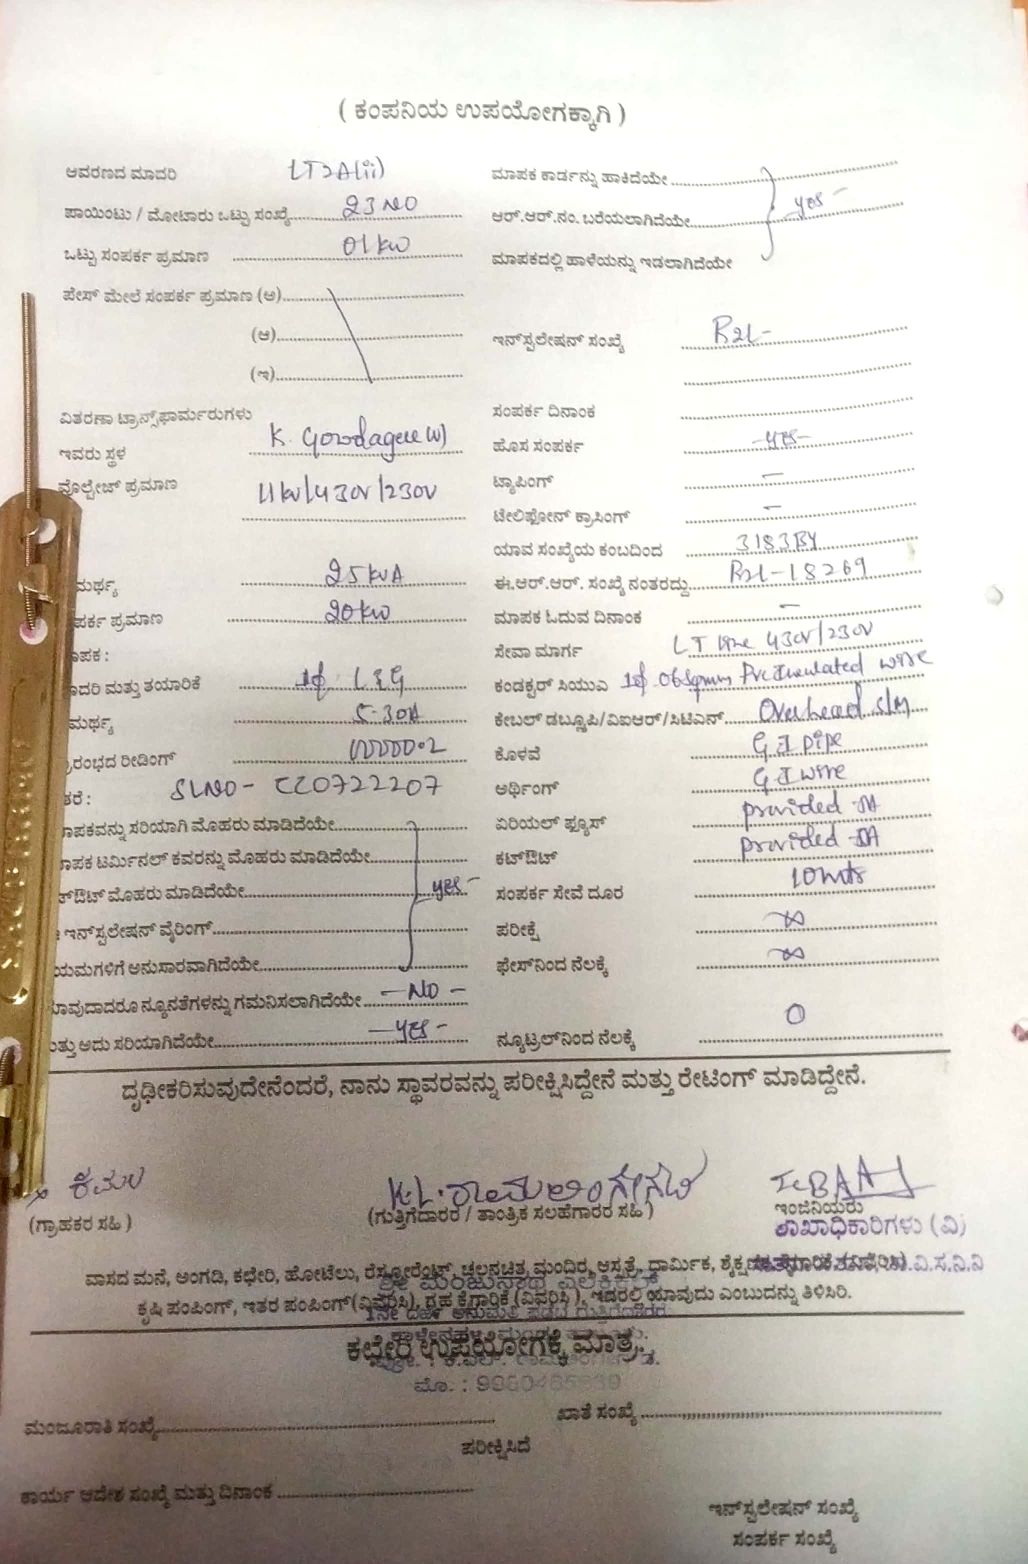 ( ಕಂಪನಿಯ ಉಪಯೋಗಕ್ಕಾಗಿ )
ಆವರಣದ ಮಾದರಿ LT2A(ii)
ಪಾಯಿಂಟು / ಮೋಟಾರು ಒಟ್ಟು ಸಂಖ್ಯೆ 23 NO
ಒಟ್ಟು ಸಂಪರ್ಕ ಪ್ರಮಾಣ 01 kw
ಪೇಸ್ ಮೇಲೆ ಸಂಪರ್ಕ ಪ್ರಮಾಣ (ಅ)
(ಆ)
(ಇ)
ವಿತರಣಾ ಟ್ರಾನ್ಸ್‌ಫಾರ್ಮರುಗಳು
ಇವರು ಸ್ಥಳ K. Gowdagere
ವೊಲ್ಟೇಜ್ ಪ್ರಮಾಣ 11kv/430v/230v
ಮರ್ಥ್ಯ 25 kVA
ಪರ್ಕ ಪ್ರಮಾಣ 20 kw
ಾಪಕ :
ಾದರಿ ಮತ್ತು ತಯಾರಿಕೆ 1ɸ L&G
ಮರ್ಥ್ಯ 5-30A
ರಂಭದ ರೀಡಿಂಗ್
ತರೆ : SLNO - CC0722207
ಾಪಕವನ್ನು ಸರಿಯಾಗಿ ಮೊಹರು ಮಾಡಿದೆಯೇ
ಾಪಕ ಟರ್ಮಿನಲ್ ಕವರನ್ನು ಮೊಹರು ಮಾಡಿದೆಯೇ
ಟ್‌ಔಟ್ ಮೊಹರು ಮಾಡಿದೆಯೇ yes -
ಇನ್‌ಸ್ಟಲೇಷನ್ ವೈರಿಂಗ್
ಯಮಗಳಿಗೆ ಅನುಸಾರವಾಗಿದೆಯೇ
ಾವುದಾದರೂ ನ್ಯೂನತೆಗಳನ್ನು ಗಮನಿಸಲಾಗಿದೆಯೇ - NO -
ತ್ತು ಅದು ಸರಿಯಾಗಿದೆಯೇ - yes -
ಮಾಪಕ ಕಾರ್ಡನ್ನು ಹಾಕಿದೆಯೇ
ಆರ್.ಆರ್.ನಂ. ಬರೆಯಲಾಗಿದೆಯೇ yes -
ಮಾಪಕದಲ್ಲಿ ಹಾಳೆಯನ್ನು ಇಡಲಾಗಿದೆಯೇ
ಇನ್‌ಸ್ಟಲೇಷನ್ ಸಂಖ್ಯೆ
ಸಂಪರ್ಕ ದಿನಾಂಕ
ಹೊಸ ಸಂಪರ್ಕ - yes -
ಟ್ಯಾಪಿಂಗ್ -
ಟೇಲಿಫೋನ್ ಕ್ರಾಸಿಂಗ್ -
ಯಾವ ಸಂಖ್ಯೆಯ ಕಂಬದಿಂದ 3183BY
ಈ.ಆರ್.ಆರ್. ಸಂಖ್ಯೆ ನಂತರದ್ದು
ಮಾಪಕ ಓದುವ ದಿನಾಂಕ -
ಸೇವಾ ಮಾರ್ಗ LT line 430v/230v
ಕಂಡಕ್ಟರ್ ಸಿಯುಎ 1ɸ 06 Sqmm Pvc Insulated wire
ಕೇಬಲ್ ಡಬ್ಲ್ಯೂಪಿ/ವಿಐಆರ್/ಸಿಟಿಎನ್ Overhead S/M
ಕೊಳವೆ G I pipe
ಅರ್ಥಿಂಗ್ G I wire
ಏರಿಯಲ್ ಫ್ಯೂಸ್ provided
ಕಟ್‌ಔಟ್ provided
ಸಂಪರ್ಕ ಸೇವೆ ದೂರ 10 mts
ಪರೀಕ್ಷೆ ∞
ಫೇಸ್‌ನಿಂದ ನೆಲಕ್ಕೆ ∞
ನ್ಯೂಟ್ರಲ್‌ನಿಂದ ನೆಲಕ್ಕೆ 0
ದೃಢೀಕರಿಸುವುದೇನೆಂದರೆ, ನಾನು ಸ್ಥಾವರವನ್ನು ಪರೀಕ್ಷಿಸಿದ್ದೇನೆ ಮತ್ತು ರೇಟಿಂಗ್ ಮಾಡಿದ್ದೇನೆ.
ಕಮಲ
(ಗ್ರಾಹಕರ ಸಹಿ )
K.L. ರಾಮಲಿಂಗೇಗೌಡ
(ಗುತ್ತಿಗೆದಾರರ / ತಾಂತ್ರಿಕ ಸಲಹೆಗಾರರ ಸಹಿ )
ಇಂಜಿನಿಯರು
ಶಾಖಾಧಿಕಾರಿಗಳು (ವಿ)
ವಾಸದ ಮನೆ, ಅಂಗಡಿ, ಕಛೇರಿ, ಹೋಟೆಲು, ರೆಸ್ಟೋರೆಂಟ್, ಚಲನಚಿತ್ರ ಮಂದಿರ, ಆಸ್ಪತ್ರೆ, ಧಾರ್ಮಿಕ,
ಕೃಷಿ ಪಂಪಿಂಗ್, ಇತರ ಪಂಪಿಂಗ್(ವಿವರಿಸಿ), ಗೃಹ ಕೈಗಾರಿಕೆ (ವಿವರಿಸಿ ), ಇದರಲ್ಲಿ ಯಾವುದು ಎಂಬುದನ್ನು ತಿಳಿಸಿರಿ.
ಕಛೇರಿ ಉಪಯೋಗಕ್ಕೆ ಮಾತ್ರ.
ಮೊ. :
ಮಂಜೂರಾತಿ ಸಂಖ್ಯೆ
ಖಾತೆ ಸಂಖ್ಯೆ
ಪರೀಕ್ಷಿಸಿದೆ
ಕಾರ್ಯ ಆದೇಶ ಸಂಖ್ಯೆ ಮತ್ತು ದಿನಾಂಕ
ಇನ್‌ಸ್ಟಲೇಷನ್ ಸಂಖ್ಯೆ
ಸಂಪರ್ಕ ಸಂಖ್ಯೆ